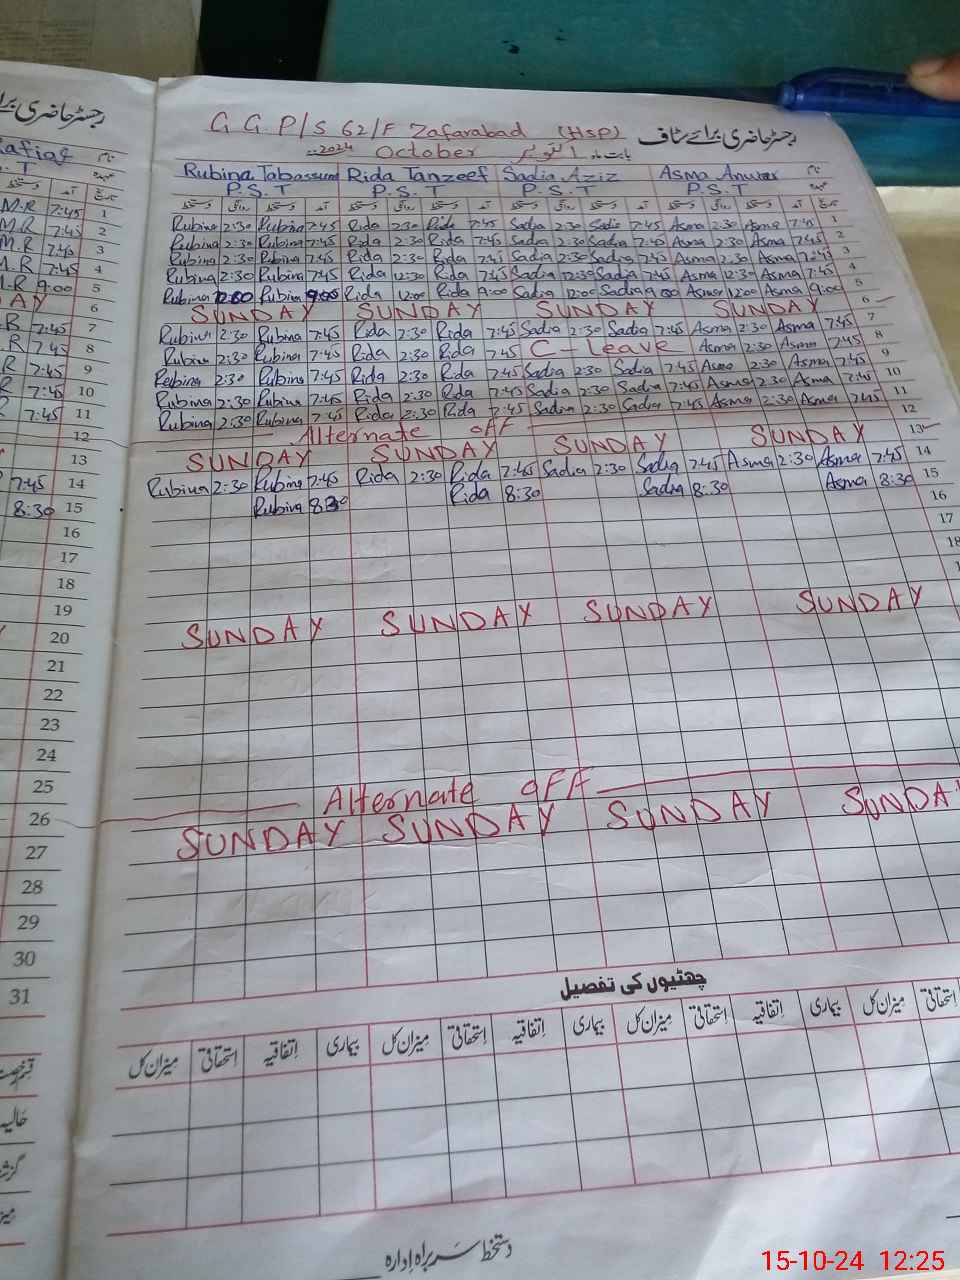 رجسٹر حاضری برائے سٹاف G G. P/S 62/F Zafarabad (HSP)
بابت ماہ اکتوبر October 2024
نام Rubina Tabassum Rida Tanzeef Sadia Aziz Asma Anwar
عہدہ P.S.T P.S.T P.S.T P.S.T
تاریخ آمد دستخط روانگی دستخط آمد دستخط روانگی دستخط آمد دستخط روانگی دستخط آمد دستخط روانگی دستخط
Rubina 2:30 Rubina 7:45 Rida 2:30 Rida 7:45 Sadia 2:30 Sadia 7:45 Asma 2:30 Asma 7:45 1
Rubina 2:30 Rubina 7:45 Rida 2:30 Rida 7:45 Sadia 2:30 Sadia 7:45 Asma 2:30 Asma 7:45 2
Rubina 2:30 Rubina 7:45 Rida 2:30 Rida 7:45 Sadia 2:30 Sadia 7:45 Asma 2:30 Asma 7:45 3
Rubina 2:30 Rubina 7:45 Rida 12:30 Rida 7:45 Sadia 12:30 Sadia 7:45 Asma 12:30 Asma 7:45 4
Rubina Rubina 9:00 Rida 12:00 Rida 9:00 Sadia 12:00 Sadia 9:00 Asma 12:00 Asma 9:00 5
SUNDAY SUNDAY SUNDAY SUNDAY 6
Rubina 2:30 Rubina 7:45 Rida 2:30 Rida 7:45 Sadia 2:30 Sadia 7:45 Asma 2:30 Asma 7:45 7
Rubina 2:30 Rubina 7:45 Rida 2:30 Rida 7:45 C-Leave Asma 2:30 Asma 7:45 8
Rubina 2:30 Rubina 7:45 Rida 2:30 Rida 7:45 Sadia 2:30 Sadia 7:45 Asma 2:30 Asma 7:45 9
Rubina 2:30 Rubina 7:45 Rida 2:30 Rida 7:45 Sadia 2:30 Sadia 7:45 Asma 2:30 Asma 7:45 10
Rubina 2:30 Rubina 7:45 Rida 2:30 Rida 7:45 Sadia 2:30 Sadia 7:45 Asma 2:30 Asma 7:45 11
Alternate off 12
SUNDAY SUNDAY SUNDAY SUNDAY 13
Rubina 2:30 Rubina 7:45 Rida 2:30 Rida 7:45 Sadia 2:30 Sadia 7:45 Asma 2:30 Asma 7:45 14
Rubina 8:30 Rida 8:30 Sadia 8:30 Asma 8:30 15
16
17
18
SUNDAY SUNDAY SUNDAY SUNDAY
Alternate OFF
SUNDAY SUNDAY SUNDAY SUNDA
چھٹیوں کی تفصیل
استحقاقی میزان کل بیماری اتفاقیہ استحقاقی میزان کل بیماری اتفاقیہ استحقاقی میزان کل بیماری اتفاقیہ استحقاقی میزان کل
دستخط سربراہ ادارہ
رجسٹر حاضری
نام
S.T عہدہ
تاریخ آمد دستخط
M.R 7:45 1
M.R 7:45 2
M.R 7:45 3
M.R 7:45 4
M.R 9:00 5
DAY 6
R 7:45 7
R 7:45 8
R 7:45 9
R 7:45 10
R 7:45 11
12
13
7:45 14
8:30 15
16
17
18
19
20
21
22
23
24
25
26
27
28
29
30
31
قسم رخصت
حالیہ
15-10-24 12:25